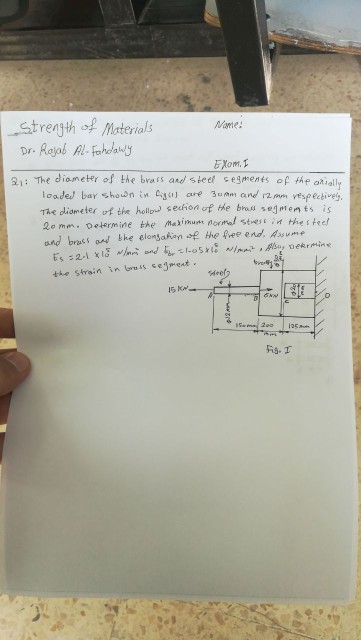 Strength of Materials
Name:
Dr. Rajab Al-Fahdawy
Exam.I
Q1: The diameter of the brass and steel segments of the axially
loaded bar shown in fig(1) are 30mm and 12mm respectively.
The diameter of the hollow section of the brass segments is
20mm. Determine the maximum normal stress in the steel
and brass and the elongation of the free end. Assume
Es = 2.1 x10⁵ N/mm² and Ebr = 1.05x10⁵ N/mm², Also, determine
the strain in brass segment.
steel
brass
15KN
6KN
A
B
C
D
φ12mm
150mm
200
mm
125mm
Fig. I